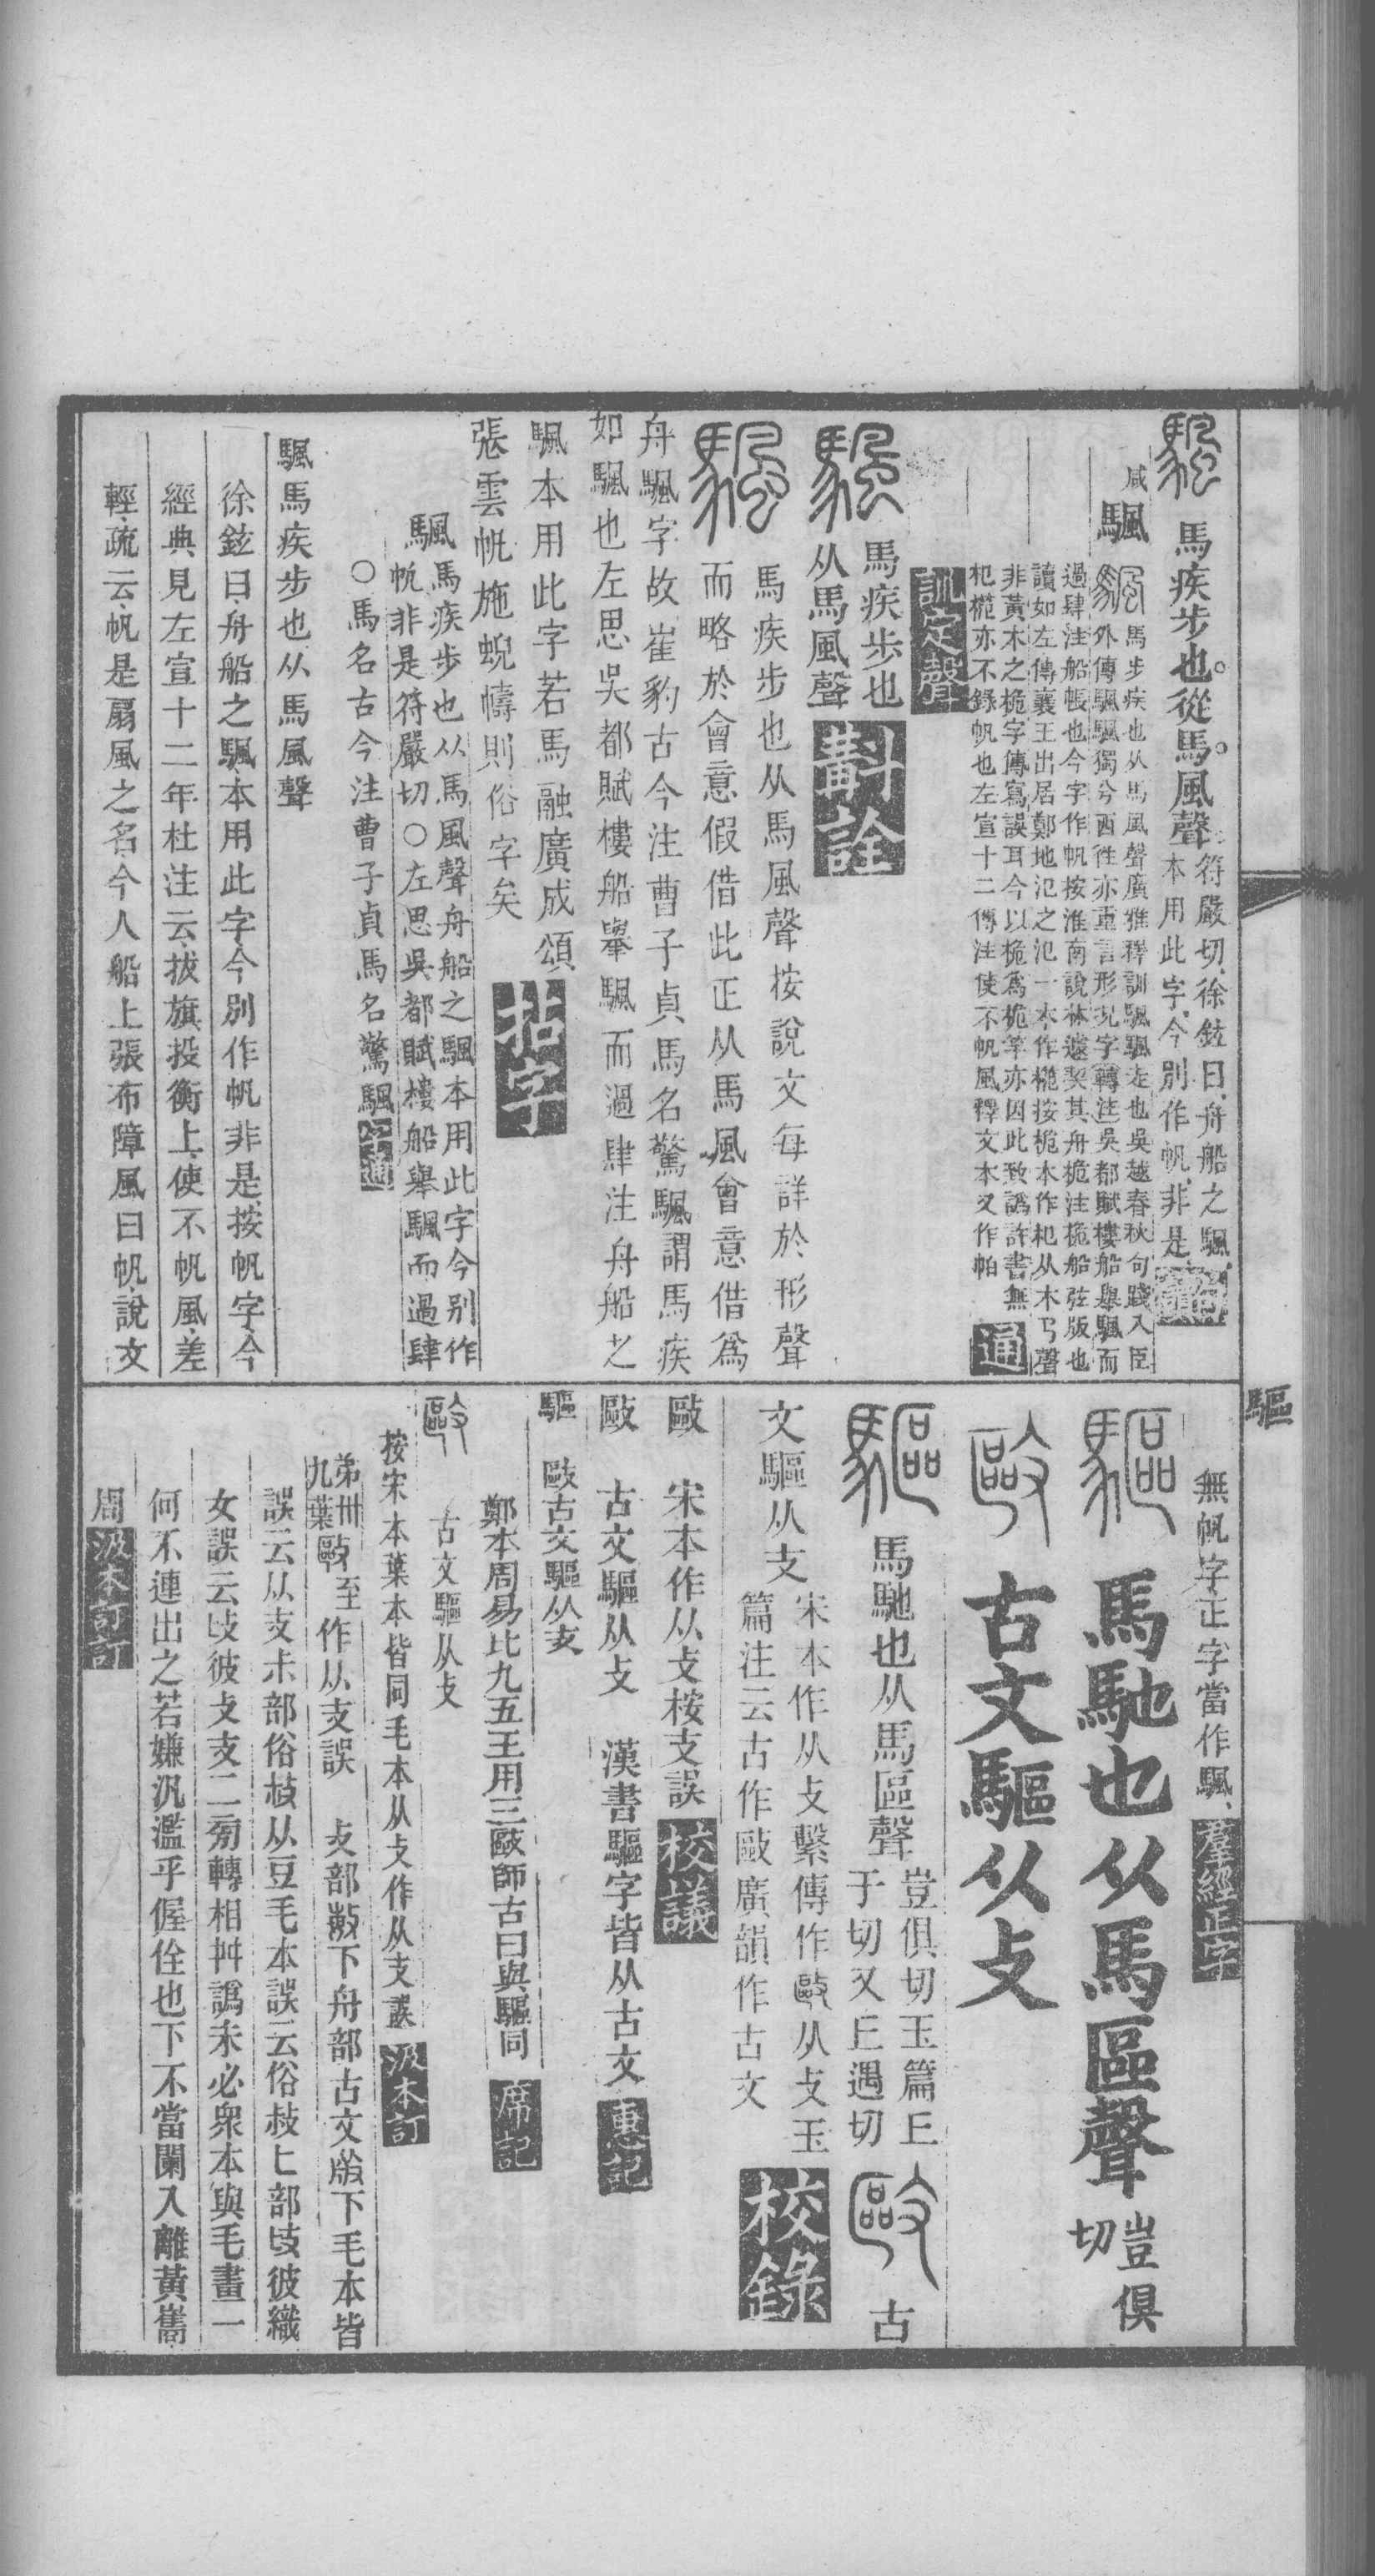 馬疾步也從馬風聲
符嚴切徐鉉曰舟船之颿
本用此字今別作帆非是
咸颿
馬步疾也从馬風聲廣雅釋訓颿颿走也吳越春秋句踐入臣
外傳颿颿獨兮西往亦重言形況字轉注吳都賦樓船舉颿而
過肆注船帳也今字作帆按淮南說林遽契其舟桅注桅船弦版也
讀如左傳襄王出居鄭地氾之氾一本作㯠按桅本作杞从木㔾聲
非黃木之桅字傳寫誤耳今以桅為桅竿亦因此致譌許書無
杞㯠亦不錄帆也左宣十二傳注使不帆風釋文本又作帕
通訓定聲
馬疾步也
从馬風聲
斠詮
馬疾步也从馬風聲按說文每詳於形聲
而略於會意假借此正从馬風會意借爲
舟颿字故崔豹古今注曹子貞馬名驚颿謂馬疾
如颿也左思吳都賦樓船舉颿而過肆注舟船之
颿本用此字若馬融廣成頌
張雲帆施蜺幬則俗字矣
颿
馬疾步也从馬風聲舟船之颿本用此字今別作
帆非是符嚴切○左思吳都賦樓船舉颿而過肆
○馬名古今注曹子貞馬名驚颿
颿馬疾步也从馬風聲
徐鉉曰舟船之颿本用此字今別作帆非是按帆字今
經典見左宣十二年杜注云拔旗投衡上使不帆風差
輕疏云帆是扇風之名今人船上張布障風曰帆說文
無帆字正字當作颿
羣經正字
驅
馬馳也从馬區聲
豈俱切
古文驅从攴
馬馳也从馬區聲
豈俱切玉篇上
于切又上遇切
古
文驅从支
宋本作从攴繫傳作敺从攴玉
篇注云古作敺廣韻作古文
校錄
敺 宋本作从攴按支誤
校議
敺 古文驅从攴 漢書驅字皆从古文
惠記
驅 敺古文驅从支
鄭本周易比九五王用三敺師古曰與驅同
席記
古文驅从攴
按宋本葉本皆同毛本从攴作从支誤
汲本訂
弟卅
九葉
敺至作从支誤 攴部下舟部古文下毛本皆
誤云从支尗部俗豉从豆毛本誤云俗㪷匕部𠨘彼織
女誤云歧彼攴支二㫄轉相舛譌未必衆本與毛畫一
何不連出之若嫌汎濫乎偓佺也下不當闌入離黃巂
周
汲本訂